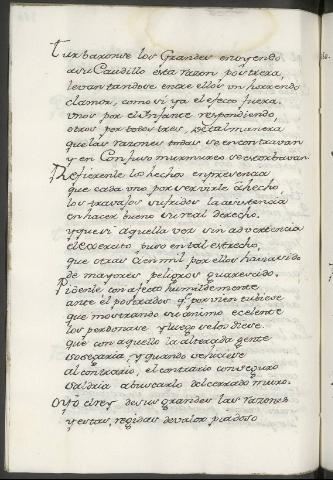 Turbaronse los Grandes en oyendo
a su Caudillo esta razon postrera,
levantandose entre ellos un horrendo
clamor, como si ya el efecto fuera.
unos por el Infante respondiendo,
otros por todos tres, de tal manera
que las razones todas se encontravan
y en confuso murmureo se
Refierenle los hechos en presencia
que cada uno por servirle à hecho,
los travajos sufridos la asistencia
en hacer bueno su real derecho.
y que si aquella vez sin advertencia
el exercito puso en tal estrecho,
que otras cien mil por ellos havia sido
de mayores peligros guarecido.
Pidenle con afecto humildemente
ante èl postrados q̃ por vien tubiese
que mostrando su animo ecelente
los perdonase y luego se los diese.
que con aquello la alterada gente
sosegaria, y quando se hiciese
al contrario, el contrario con seguro
saldria a buscarlo del cerrado muro.
Oyò el rey de sus grandes las razones
y estas, regidas de valor piadoso